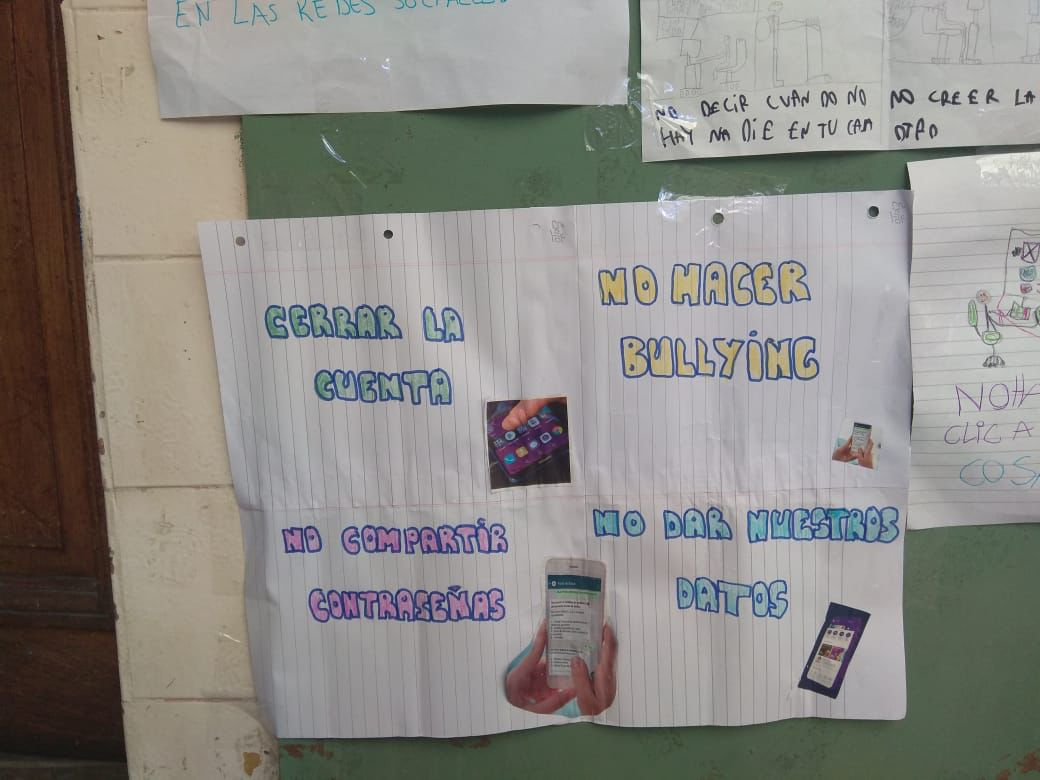 EN LAS REDES SOCIALES
NO DECIR CUANDO NO
HAY NADIE EN TU CASA
NO CREER LA
OTRO
CERRAR LA
CUENTA
NO HACER
BULLYING
NO COMPARTIR
CONTRASEÑAS
NO DAR NUESTROS
DATOS
CLIC A